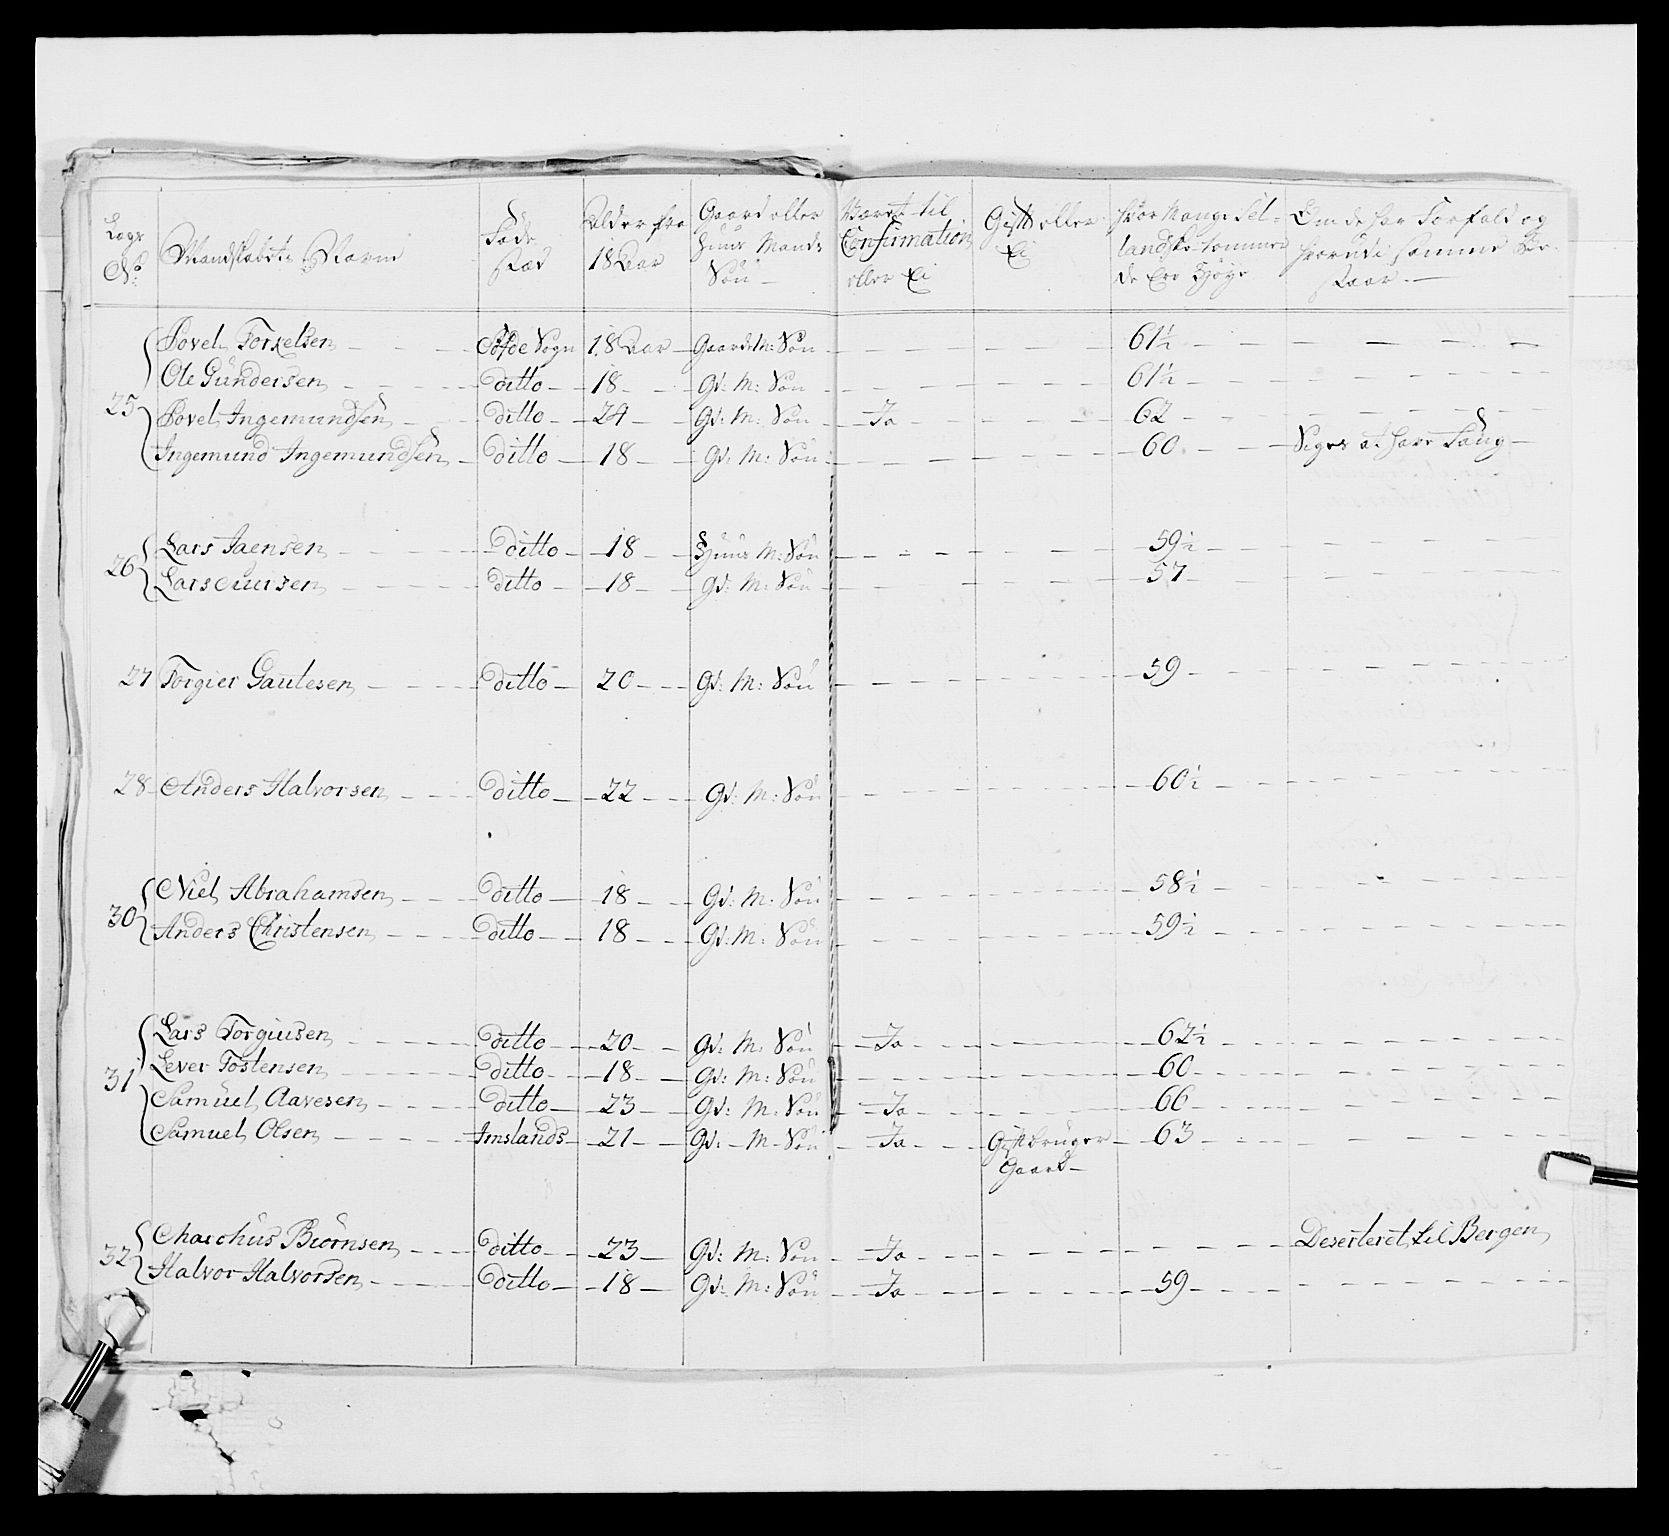 Lægs No: | Mandskabets Navne | Føde stæd | Alder fra 18 Aar | Gaard eller Huus Mands Søn | Været til Confirmation eller Ei | Gift eller Ei | Hvor Mange Sel-landske Tommer de Ere Høye | Om de har Forfald og hvorudi samme Be-staar
25 Povel Torkelsen - Søfde Sogn 18 Aar Gaards M: Søn - - - 61½ - -
Ole Gundersen - ditto 18 Gd: M: Søn - - - 61½ - -
Povel Ingemundsen - ditto 24 Gd: M: Søn - Ja - - 62 - -
Ingemund Ingemundsen - ditto 18 Gd: M: Søn - - - 60 - Siges at have Saug
26 Lars Jaensen - ditto 18 Huus M: Søn - - - 59½ - -
Lars - ditto 18 Gd: M: Søn - - - 57 - -
27 Torgier Gautesen - ditto 20 Gd: M: Søn - - - 59 - -
28 Anders Halvorsen - ditto 22 Gd: M: Søn - - - 60½ - -
30 Niel Abrahamsen - ditto 18 Gd: M: Søn - - - 58½ - -
Anders Christensen - ditto 18 Gd: M: Søn - - - 59½ - -
31 Lars Torgiusen - ditto 20 Gd: M: Søn - Ja - - 62½ - -
Lever Tostensen - ditto 18 Gd: M: Søn - - - 60 - -
Samuel Aavesen - ditto 23 Gd: M: Søn - Ja - - 66 - -
Samuel Olsen - Imslands 21 Gd: M Søn - Ja - Gift bruger 63 - -
Gaard
32 Biørnsen - ditto 23 Gd: M: Søn - Ja - - - Deserteret til Bergen
Halvor Halvorsen - ditto 18 Gd: M: Søn - Ja - - 59 - -